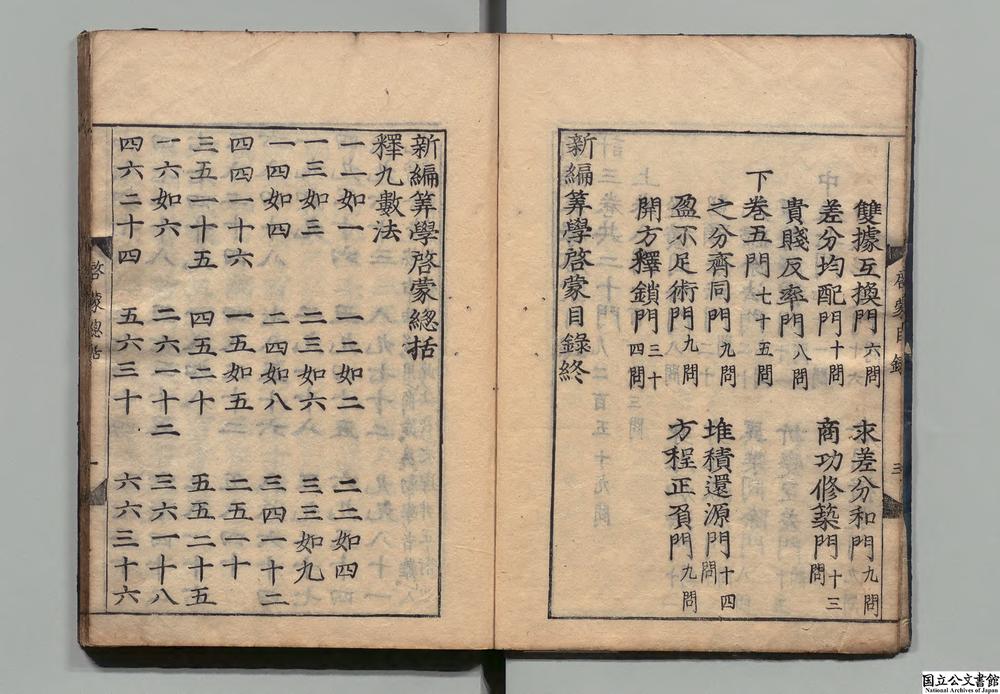 雙據互換門六問　求差分和門九問
差分均配門十問　商功修築門十三問
貴賤反率門八問
下卷五門七十五問
之分齊同門九問　堆積還源門十四問
盈不足術門九問　方程正負門九問
開方釋鎖門三十四問
新編筭學啓蒙目錄終
新編筭學啓蒙總括
釋九數法
一一如一　一二如二　二二如四
一三如三　二三如六　三三如九
一四如四　二四如八　三四一十二
四四一十六　一五如五　二五一十
三五一十五　四五二十　五五二十五
一六如六　二六一十二　三六一十八
四六二十四　五六三十　六六三十六
啓蒙目錄　三
啓蒙總括　一
国立公文書館
National Archives of Japan